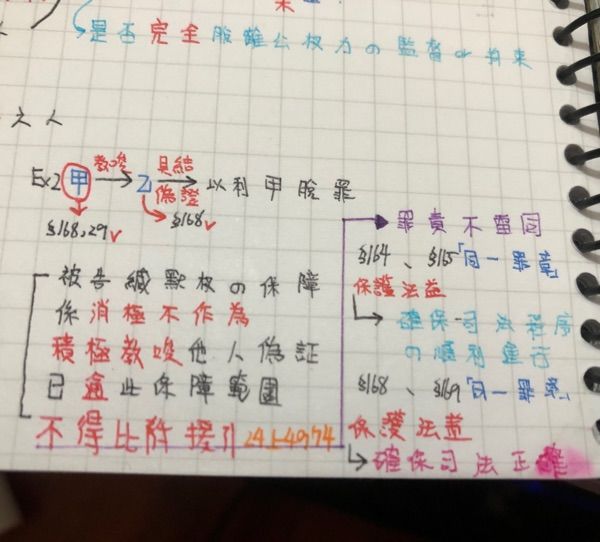 是否完全脫離公权力の監督or拘束
之人
Ex2 甲 教唆 乙 具結 偽證 以利甲脫罪
§168,29✓ §168✓
被告緘默权の保障
係消極不作為
積極教唆他人偽証
已逾此保障範圍
不得比附援引 24上4974
罪責不雷同
§164、§165「同一罪章」
保護法益
確保司法程序
の順利進行
§168、§169「同一罪章」
保護法益
確保司法正確